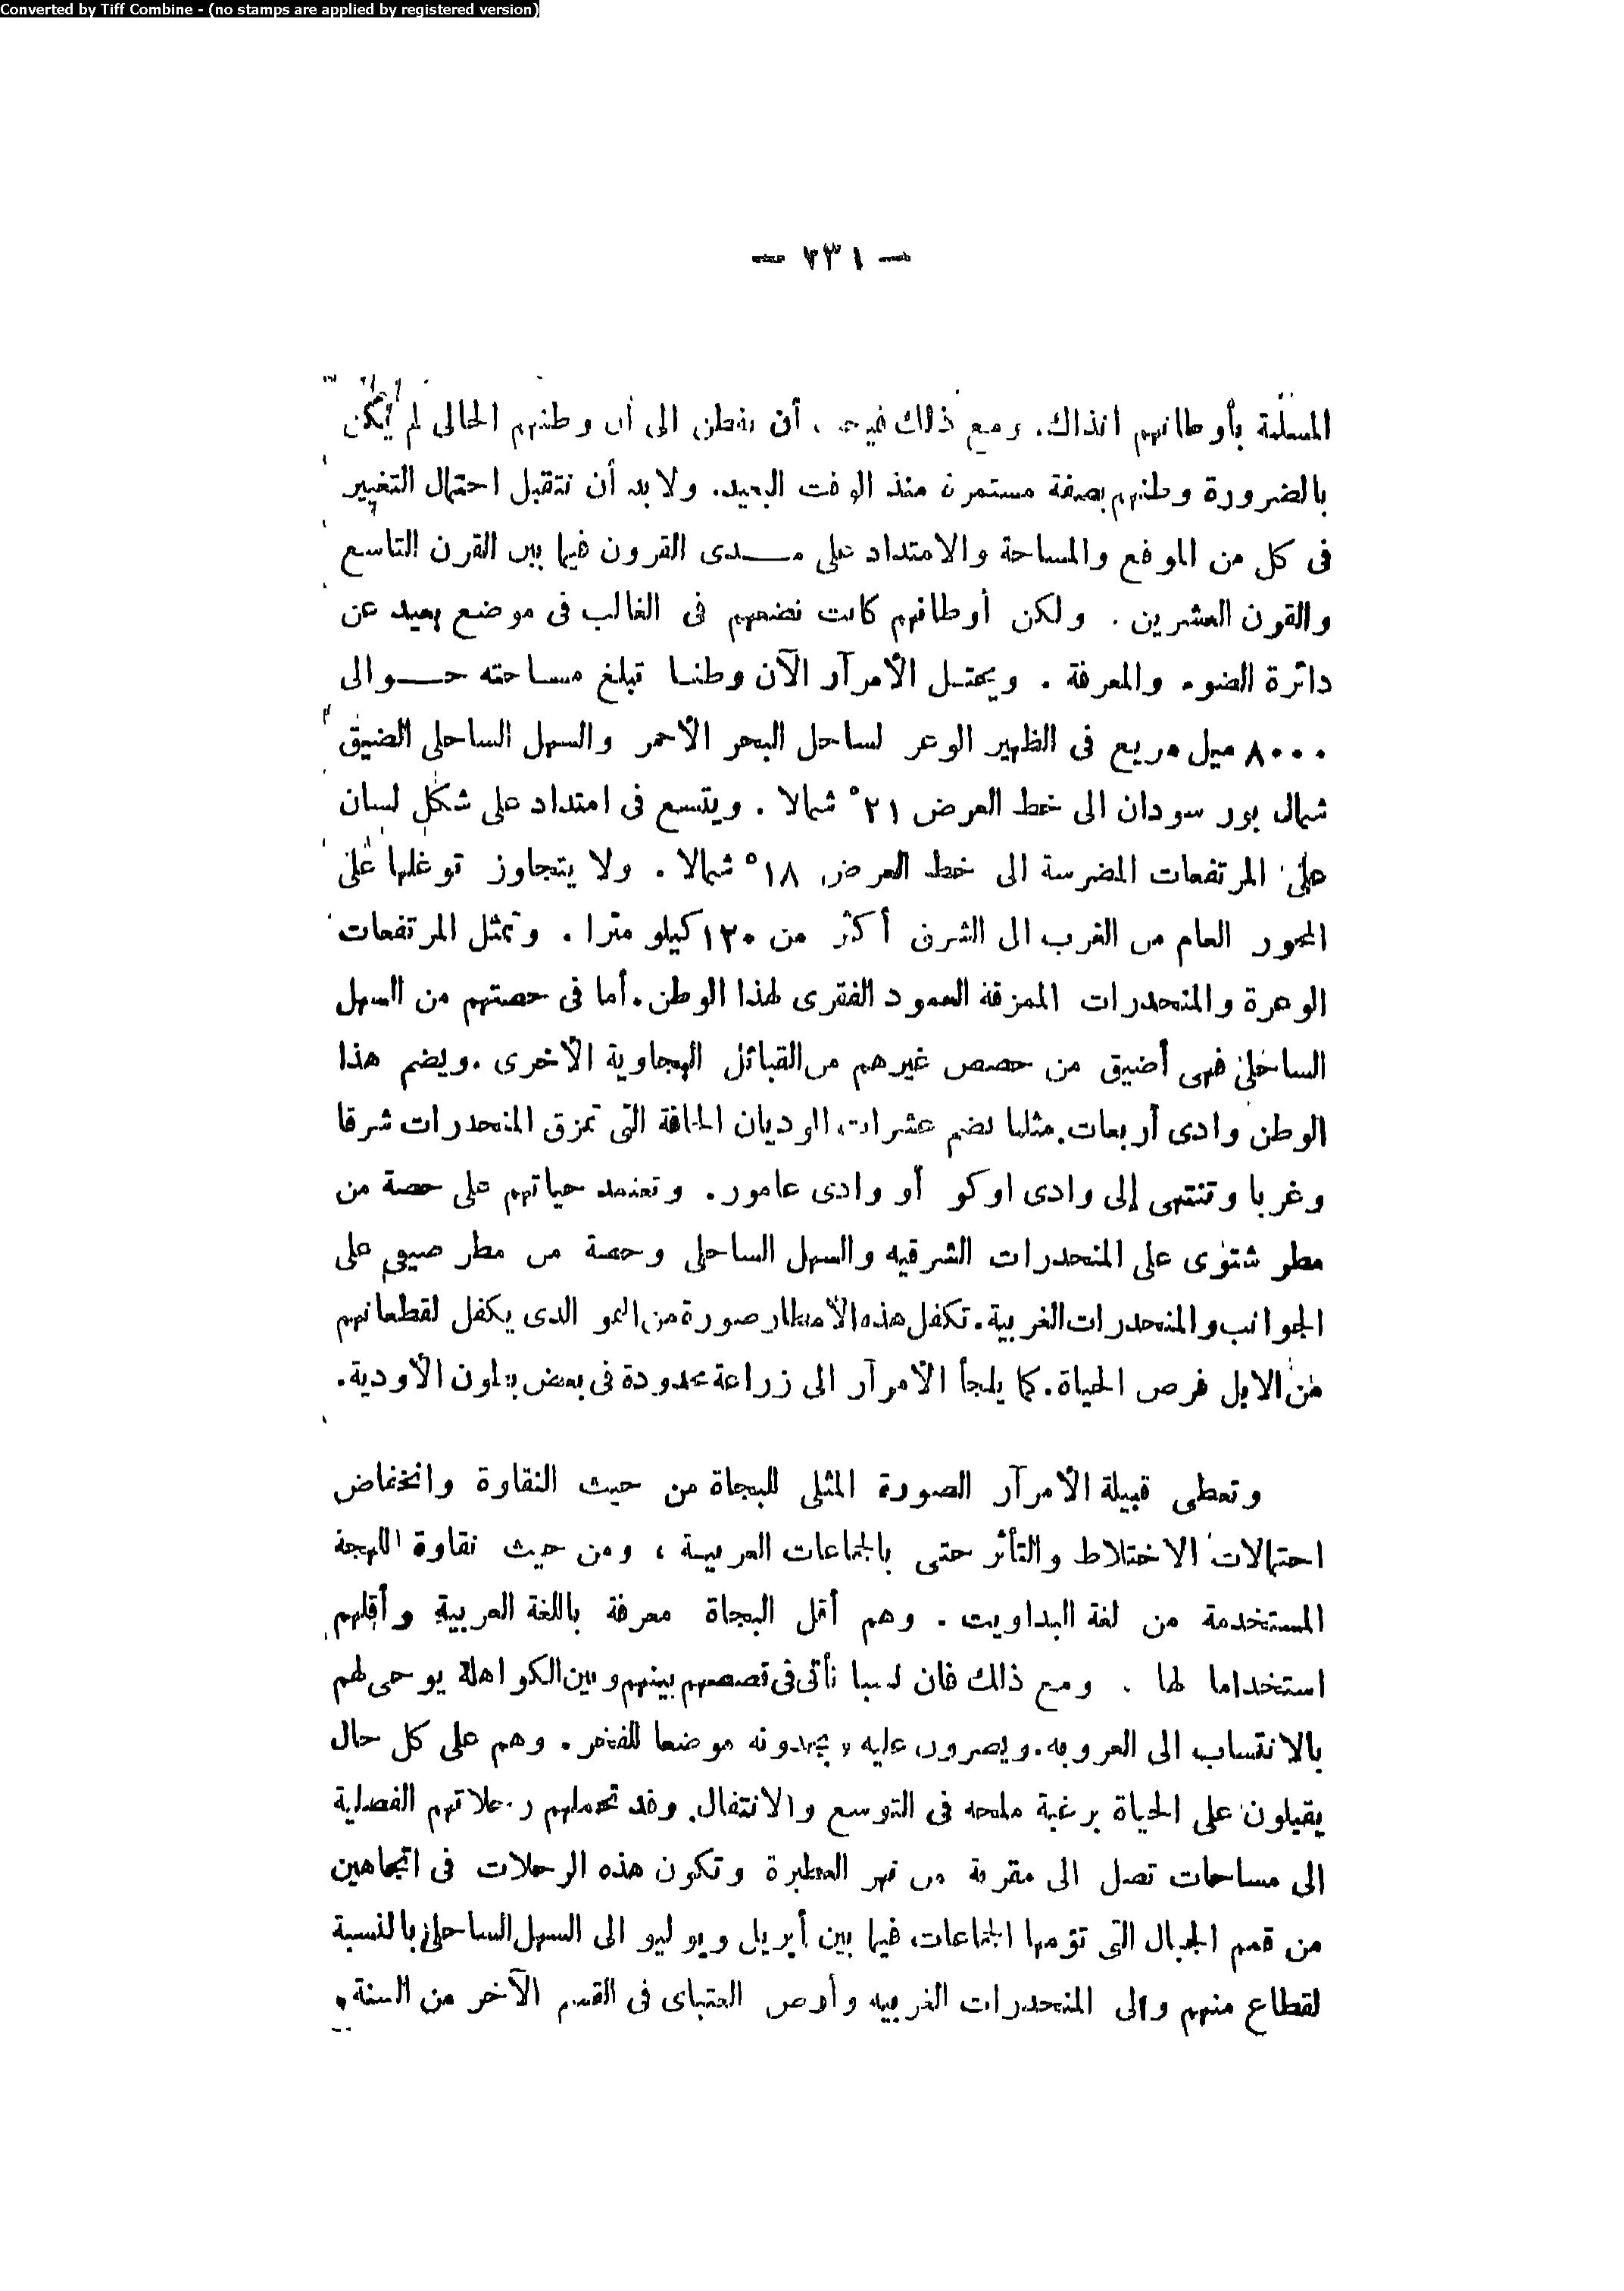 Converted by Tiff Combine - (no stamps are applied by registered version)
— ٢٣١ —
المسلمة بأوطانهم انذاك. ومع ذلك أن نفطن الى أن وطنهم الحالى لم يكن
بالضرورة وطنهم بصفة مستمرة منذ الوقت البعيد. ولا بد أن نتقبل احتمال التغيير
فى كل من الموقع والمساحة والامتداد على مدى القرون فيما بين القرن التاسع
والقرن العشرين . ولكن أوطانهم كانت تضعهم فى الغالب فى موضع بعيد عن
دائرة الضوء والمعرفة . ويحتل الأمرآر الآن وطنا تبلغ مساحته حوالى
٨٠٠٠ ميل مربع فى الظهير الوعر لساحل البحر الأحمر والسهل الساحلى الضيق
شمال بور سودان الى خط العرض ٢١° شمالا . ويتسع فى امتداد على شكل لسان
على المرتفعات المضرسة الى خط العرض ١٨° شمالا . ولا يتجاوز توغلها على
المحور العام من الغرب الى الشرق أكثر من ١٢٠ كيلو مترا . وتمثل المرتفعات
الوعرة والمنحدرات الممزقة العمود الفقرى لهذا الوطن. أما فى حصتهم من السهل
الساحلى فهى أضيق من حصص غيرهم من القبائل البجاوية الأخرى . ويضم هذا
الوطن وادى أربعات. مثلما يضم عشرات الوديان الجافة التى تمزق المنحدرات شرقا
وغربا وتنتهى إلى وادى اوكو أو وادى عامور. وتعتمد حياتهم على حصة من
مطر شتوى على المنحدرات الشرقيه والسهل الساحلى وحصة من مطر صيفى على
الجوانب والمنحدرات الغربية. تكفل هذه الأمطار صورة من النمو الذى يكفل لقطعانهم
من الابل فرص الحياة. كما يلجأ الأمرآر الى زراعة محدودة فى بعض بطون الأودية.
وتعطى قبيلة الأمرآر الصورة المثلى للبجاة من حيث النقاوة وانخفاض
احتمالات الاختلاط والتأثر حتى بالجماعات العربية ، ومن حيث نقاوة اللهجة
المستخدمة من لغة البداويت . وهم أقل البجاة معرفة باللغة العربية وأقلهم
استخداما لها . ومع ذلك فان نسبا تأتى فى قصصهم بينهم وبين الكواهلة يوحى لهم
بالانتساب الى العروبه. ويصرون عليه ويجدونه موضعا للفخر. وهم على كل حال
يقبلون على الحياة برغبة ملحه فى التوسع والانتقال. وقد تحملهم رحلاتهم الفصلية
الى مساحات تصل الى مقربة من نهر العطبرة وتكون هذه الرحلات فى اتجاهين
من قمم الجبال التى تؤمها الجماعات فيما بين أبريل ويوليو الى السهل الساحلى بالنسبة
لقطاع منهم والى المنحدرات الغربيه وأرض العتباى فى القسم الآخر من السنة.